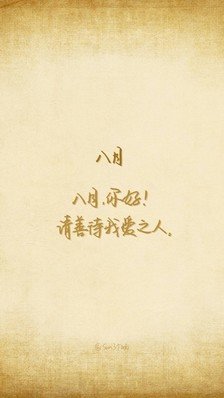 八月
八月，你好！
请善待我爱之人。